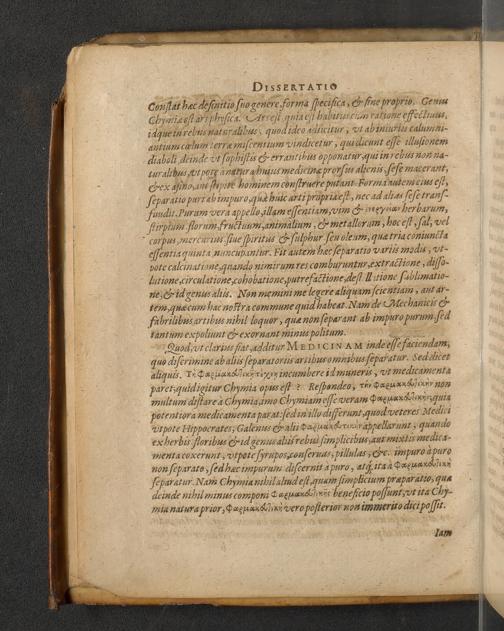 DISSERTATIO
Constat hæc definitio suo genere, forma specifica, & fine proprio. Genus
Chymiæ est ars physica. Ars est, quia est habitus cum ratione effectivus,
idque in rebus naturalibus, quod ideo adiicitur, vt ab iniurius calumni-
antium cœlum terra miscentium vindicetur, qui dicunt esse illusionem
diaboli, deinde vt sophistis & errantibus opponatur, qui in rebus non na-
turalibus, vtpote à natura huius medicinæ prorsus alienis, sese macerant,
& ex asino, aut stipite hominem construere putant. Forma autem eius est,
separatio puri ab impuro, quæ huic arti propria est, nec ad alias sese trans-
fundit. Purum vero appello, illam essentiam, vim & herbarum,
stirpium, florum, fructuum, animalium, & metallorum, hoc est, sal, vel
corpus, mercurius, siue spiritus & sulphur, seu oleum, quæ tria coniuncta
essentia quinta nuncupantur. Fit autem hæc separatio variis modis, vt-
pote calcinatione, quando nimirum res comburuntur, extractione, disso-
lutione, circulatione, cohobatione, putrefactione, destillatione sublimatio-
ne, & id genus aliis. Non memini me legere aliquam scientiam, aut ar-
tem, quæ cum hac nostra commune quid habeat. Nam de Mechanicis &
fabrilibus artibus nihil loquor, quæ non separant ab impuro purum, sed
tantum expoliunt & exornant minus politum.
Quod, vt clarius fiat, additur MEDICINAM inde esse faciendam,
quo discrimine ab aliis separatoriis artibus omnibus separatur. Sed dicet
aliquis. Τῇ Φαρμακευτικῇ τέχνῃ incumbere id muneris, vt medicamenta
paret, quid igitur Chymia opus est? Respondeo, τὴν Φαρμακευτικὴν non
multum distare à Chymia, imo Chymiam esse veram Φαρμακευτικὴν, quia
potentiora medicamenta parat: sed in illo differunt, quod veteres Medici
vtpote Hippocrates, Galenus & alii Φαρμακευτικὴν appellarunt, quando
ex herbis floribus & id genus aliis rebus simplicibus, aut mixtis medica-
menta coxerunt, vtpote syrupos, conseruas, pillulas, &c. impuro à puro
non separato, sed hæc impurum discernit à puro, atq; ita à Φαρμακευτικῇ
separatur. Nam Chymia nihil aliud est, quam simplicium præparatio, quæ
deinde nihil minus componi Φαρμακευτικῆς beneficio possunt, vt ita Chy-
mia natura prior, Φαρμακευτικὴ vero posterior non immerito dici possit.
Iam